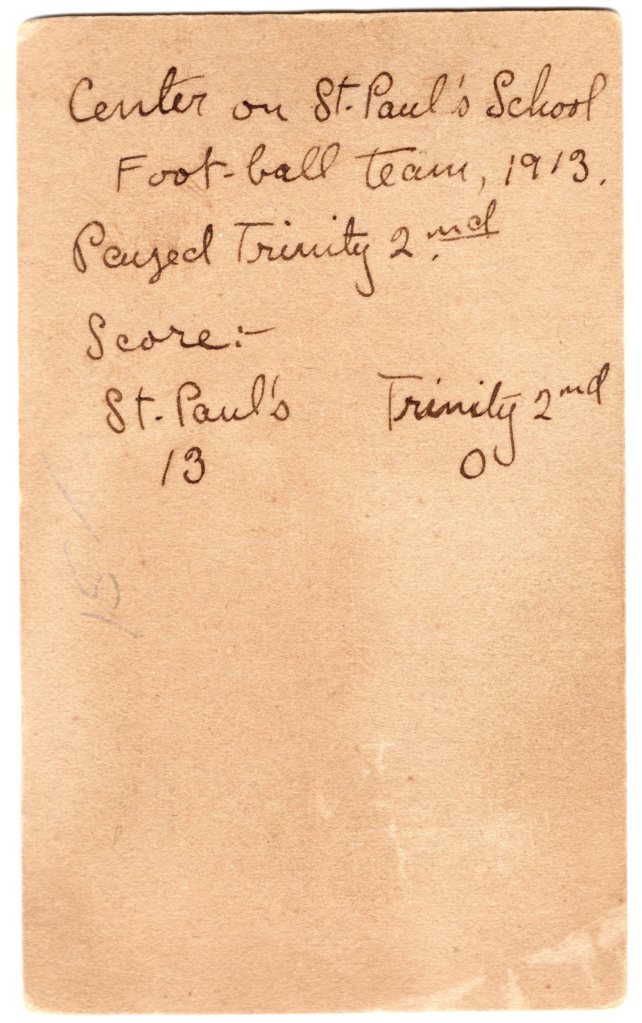 Center on St. Paul's School
Foot-ball team, 1913.
Played Trinity 2nd.
Score:-
St. Paul's Trinity 2nd
13 0
15